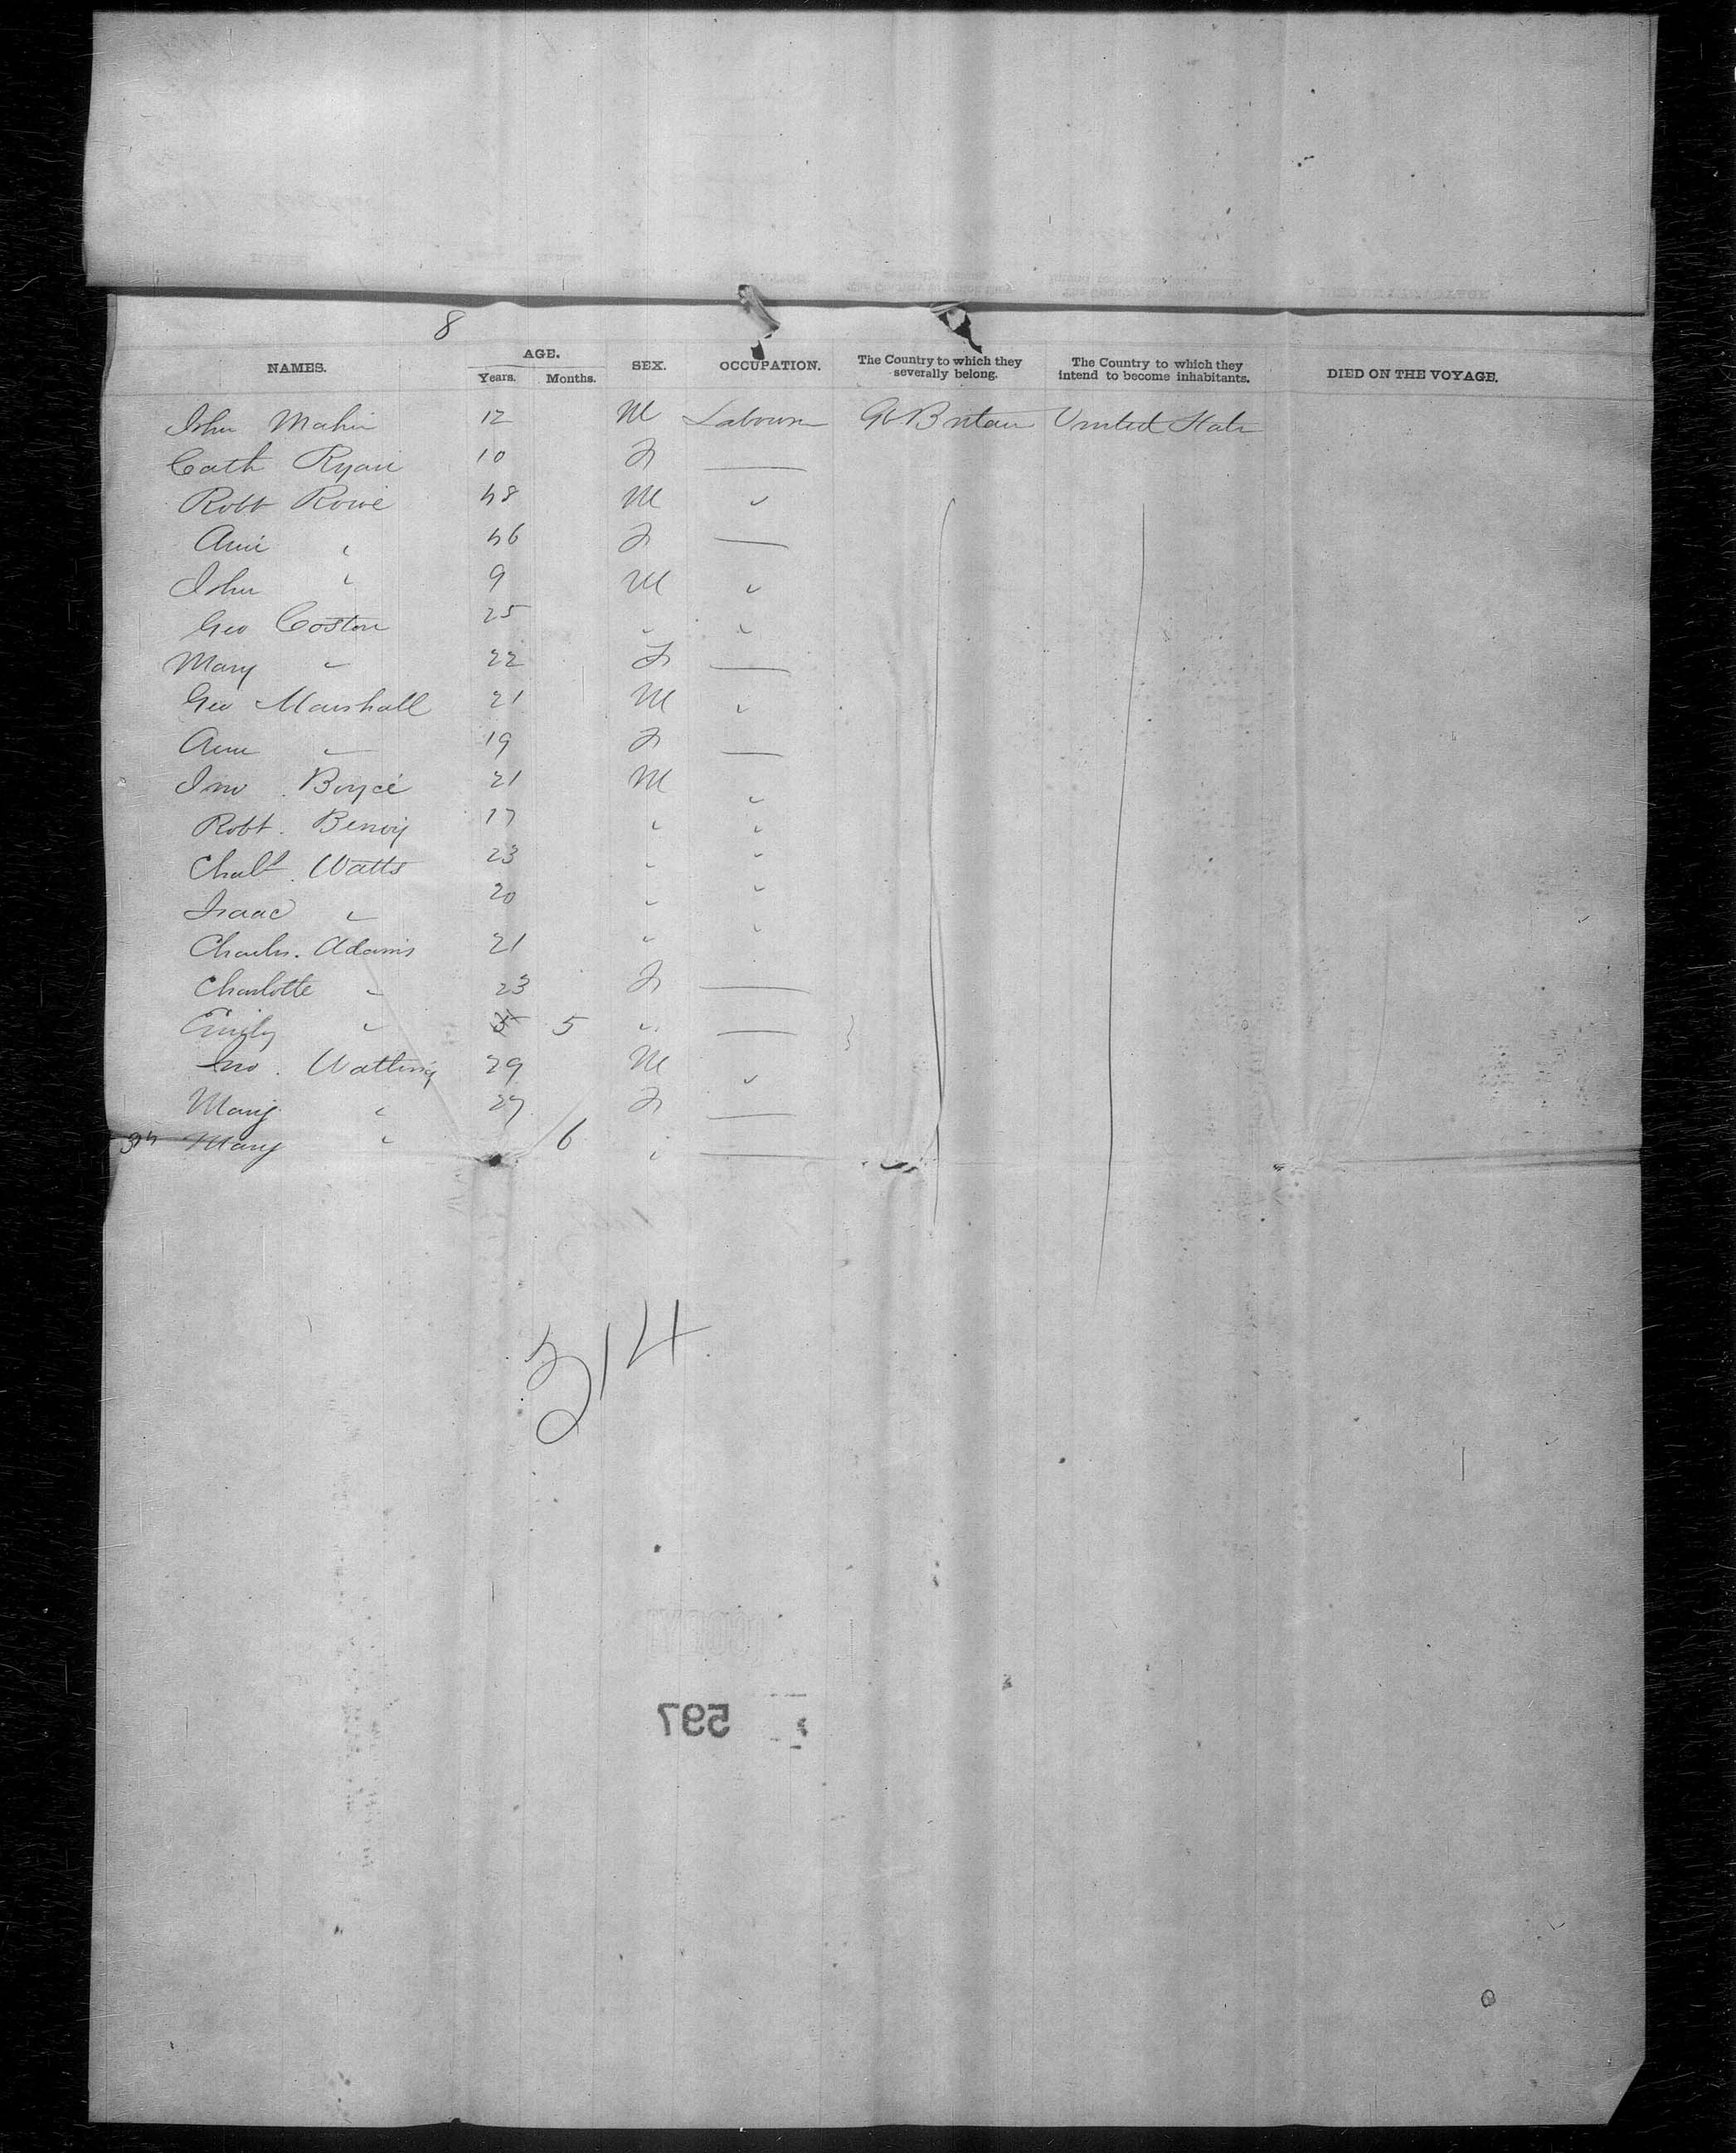 8
NAMES. AGE. SEX. OCCUPATION. The Country to which they severally belong. The Country to which they intend to become inhabitants. DIED ON THE VOYAGE.
Years. Months.
John Mahin 12 M Labourer Gt Britain United State
Cath Ryan 10 F —
Robt Rowe 48 M "
Ann " 46 F —
John " 9 M "
Geo Coston 25 " "
Mary " 22 F —
Geo Marshall 21 M "
Ann " 19 F —
Jno Boyce 21 M "
Robt. 17 " "
Watts 23 " "
Isaac " 20 " "
Charles. Adams 21 " "
Charlotte " 23 F —
Emily " 5 " —
Jno. Watling 29 M "
Mary " 27 F —
Mary " 6 " —
314
597